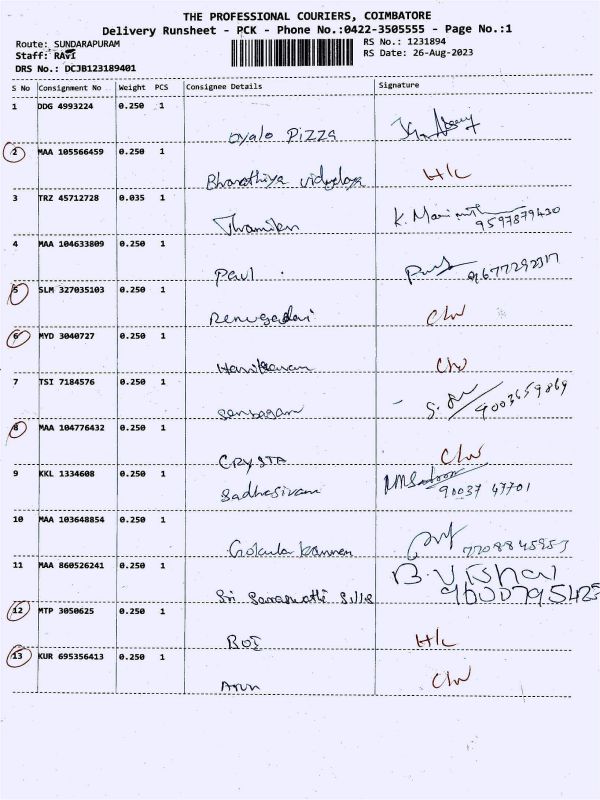 THE PROFESSIONAL COURIERS, COIMBATORE
Delivery Runsheet - PCK - Phone No.:0422-3505555 - Page No.:1
Route: SUNDARAPURAM
Staff: RAVI
DRS No.: DCJB123189401
RS No.: 1231894
RS Date: 26-Aug-2023
S No Consignment No Weight PCS Consignee Details Signature
1 DDG 4993224 0.250 1
oyalo Pizza
2 MAA 105566459 0.250 1
Bharathiya vidyalaya H/c
3 TRZ 45712728 0.035 1
K. Mani
9597879430
4 MAA 104633809 0.250 1
Paul
9677292317
5 SLM 327035103 0.250 1
Renugadevi C/w
6 MYD 3040727 0.250 1
Hariharan C/w
7 TSI 7184576 0.250 1
Senbagam 9003659869
8 MAA 104776432 0.250 1
CRYSTA C/w
9 KKL 1334608 0.250 1
Sadhasivam 90037 47701
10 MAA 103648854 0.250 1
Gokula kannan 7708845953
11 MAA 860526241 0.250 1
B. Vishal
Sri Saraswathi Silks 9600795425
12 MTP 3050625 0.250 1
BOI H/c
13 KUR 695356413 0.250 1
Arun C/w